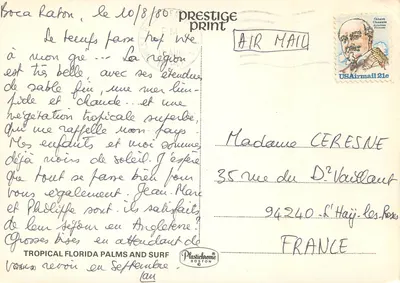 Boca Raton, le 10/8/80
Le temps passe trop vite
à mon gré... La région
est très belle, avec ses étendues
de sable fin, une mer lim-
pide et chaude... et une
végétation tropicale superbe,
qui me rappelle mon pays.
Mes enfants et moi sommes
déjà noirs de soleil. J'espère
que tout se passe bien pour
vous également. Jean-Marc
et Philippe sont-ils satisfaits
de leur séjour en Angleterre?
Grosses bises en attendant de
vous revoir en Septembre.
PRESTIGE
PRINT
AIR MAIL
USAirmail 21c
Madame CERESNE
35 rue du Dr Vaillant
94240 - L'Haÿ-les-Roses
FRANCE
TROPICAL FLORIDA PALMS AND SURF
Plastichrome
BOSTON